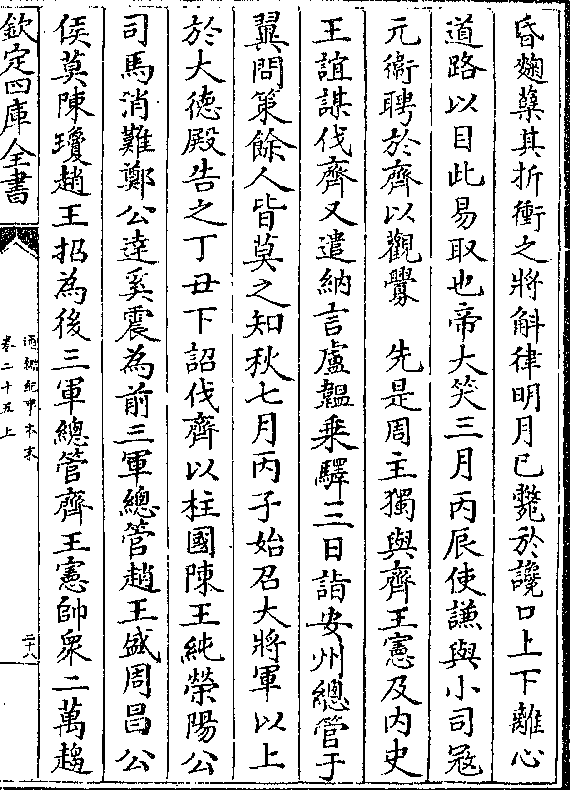 昏麴櫱其折衝之將斛律明月已斃於讒口上下離心
道路以目此易取也帝大笑三月丙辰使謙與小司冦
元衞聘於齊以觀釁　先是周主獨與齊王憲及内史
王誼謀伐齊又遣納言盧韞乗驛三日詣安州總管于
翼問策餘人皆莫之知秋七月丙子始召大將軍以上
於大德殿告之丁丑下詔伐齊以柱國陳王純榮陽公
司馬消難鄭公達奚震為前三軍總管趙王盛周昌公
侯莫陳瓊趙王招為後三軍總管齊王憲帥衆二萬趨
欽定四庫全書
通鑑紀事本末
卷二十五上
二十八